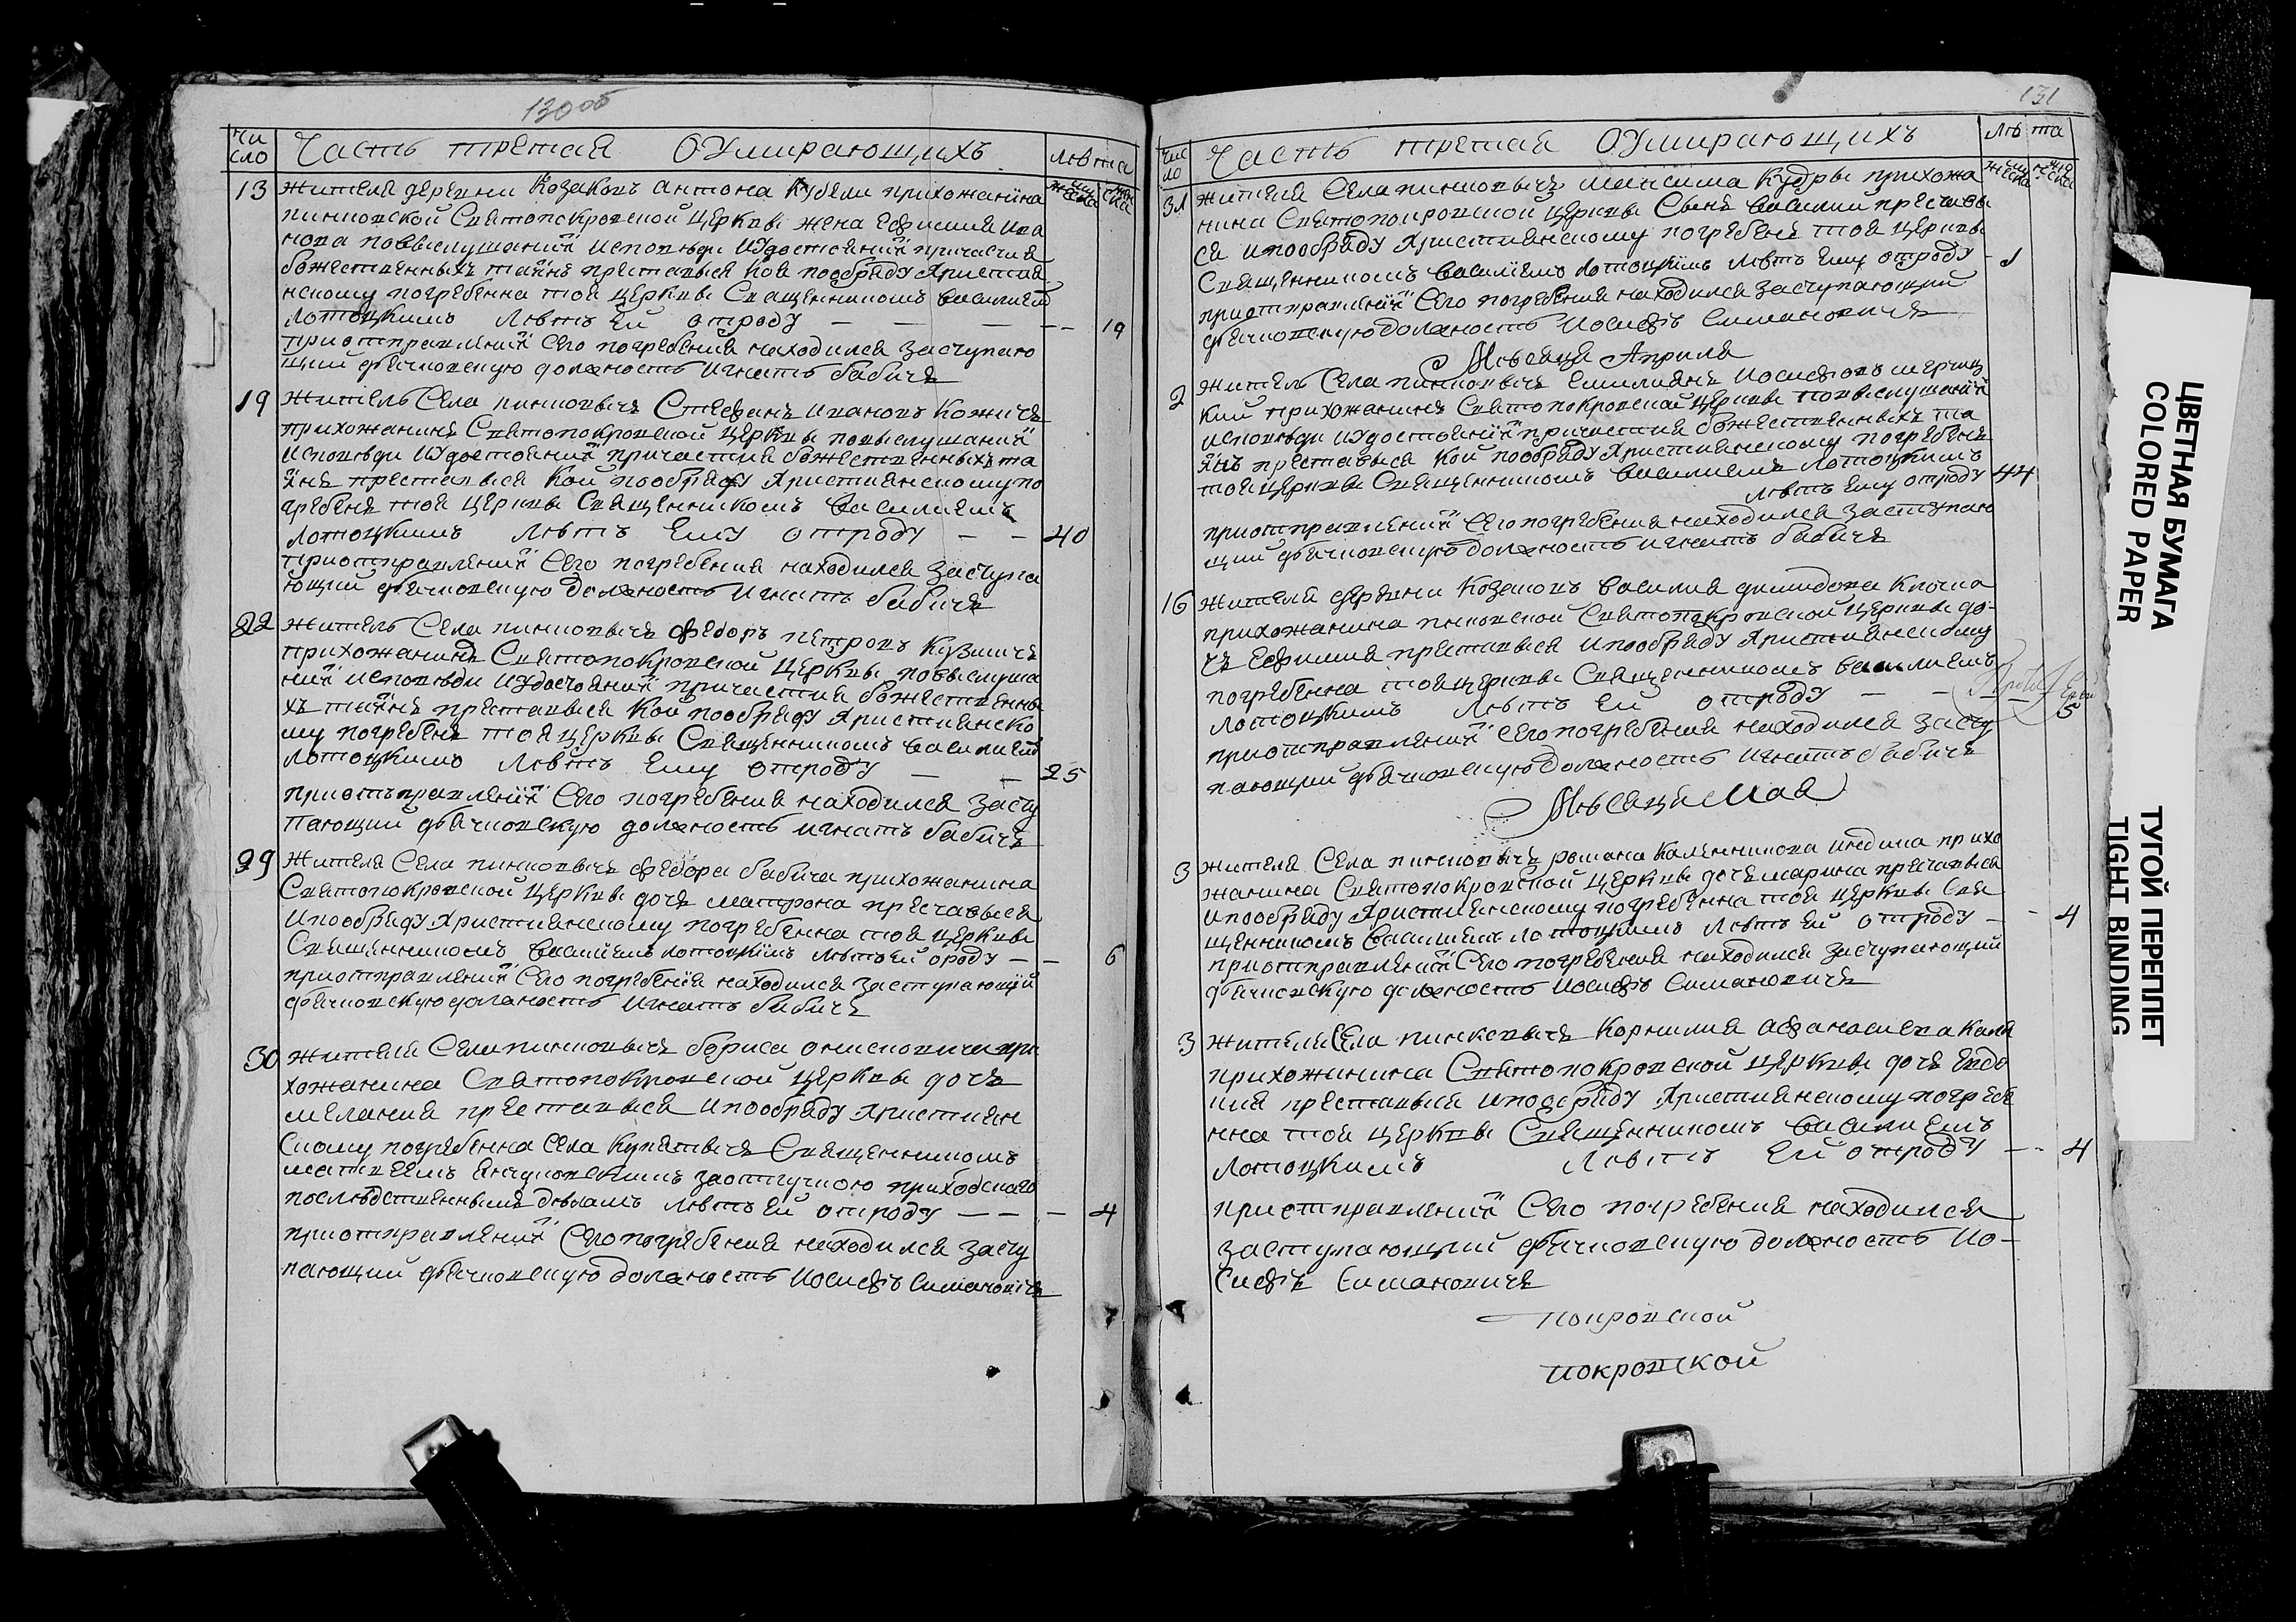 130об
Чи
сло
Часть третая ОУмирающихъ
Лѣта
13
жителя деревни Козаковъ антона Кубели прихожанина
пинковской Святопокровской церкви жена Ефимия ива
нова повыслушаниї исповѣди иудостояниї причастия
божественныхъ таїнъ преставися коя пообряду християн
нскому погребенна тоя церкви Священникомъ василием
Лотоцкимъ Лѣтъ Ей отроду — — — —
19
приотправлениї Сего погребения находился заступаю
щий дьячковскую должность игнатъ бабичъ
19
Житель Села пинковичъ Стефанъ ивановъ Кожичъ
прихожанинъ Святопокровской церкви повыслушаниї
исповѣди иудостояниї причастия божественныхъ та
їнъ преставися кой пообряду християнскому по
гребенъ тоя церкви Священникомъ василиемъ
Лотоцкимъ Лѣтъ Ему отроду — —
40
приотправлениї Сего погребения находился заступа
ющий дьячковскую должность игнатъ бабичъ
22
житель Села пинковичъ федоръ петровъ Кузмичъ
прихожанинъ Святопокровской церкви повыслуша
ниї исповѣди иудостояниї причастия божественны
хъ таїнъ преставися кой пообряду християнско
му погребенъ тоя церкви Священникомъ василием
Лотоцкимъ Лѣтъ Ему отроду — —
25
приотправлениї Сего погребения находился засту
пающий дьячковскую должность игнатъ бабичъ
29
жителя Села пинковичъ федора бабича прихожанина
Святопокровской церкви дочъ матрона преставися
ипообряду християнскому погребенна тоя церкви
Священникомъ василїемъ Лотоцкїмъ Лѣтъ Ей ороду — —
6
приотправлениї Сего погребенїя находился заступающїй
дьячковскую должность игнатъ бабичъ
30
жителя Села пинковичъ бориса онисковича при
хожанина Святопокровской церкви дочъ
мелания преставися ипообряду християн
скому погребенна Села Купятичъ Священникомъ
матвеемъ заотлучкою приходскаго
послѣдственнымъ дѣламъ Лѣтъ Ей отроду — — —
4
приотправлениї Сего погребения находился засту
пающий дьячковскую должность иосифъ Симановичъ
131
Чис
ло
Часть третая ОУмирающихъ
Лѣта
31
жителя Села пинковичъ максима Кудры прихожа
нина Святопокровской церкви Сынъ василий престави
ся ипообряду християнскому погребенъ тоя церкви
Священникомъ василїемъ Лотоцкимъ Лѣтъ Ему отроду
1
приотправлениї Сего погребения находился заступающий
дьячковскую должность иосифъ Симановичъ
Мѣсяца Априля
2
житель Села пинковичъ Емилиянъ иосифовъ
кий прихожанинъ Святопокровской церкви повыслушаниї
исповѣди иудостояниї причастия божественныхъ та
їнъ преставися кой пообряду християнскому погребенъ
тоя церкви Священникомъ василиемъ Лотоцкимъ
Лѣтъ Ему отроду
44
приотправлениї Сего погребения находился заступаю
щий дьячковскую должность игнатъ бабичъ
16
жителя деревни Козаковъ василия демидова Клочка
прихожанина пинковской Святопокровской церкви до-
чъ Ефимия преставися ипообряду християнскому
погребенна тоя церкви Священникомъ василиемъ
Лотоцкимъ Лѣтъ Ей отроду — — —
5
приотправлениї Сего погребения находился засту
пающий дьячковскую должность игнатъ бабичъ
Мѣсяца Мая
3
жителя Села пинковичъ романа Каленикова прихо
жанина Святопокровской церкви дочъ марина преставися
ипообряду християнскому погребенна тоя церкви Свя
щенникомъ василиемъ Лотоцкимъ Лѣтъ Ей отроду — —
4
приотправлениї Сего погребения находился заступающий
дьячковскую должность иосифъ Симановичъ
3
жителя Села пинковичъ Корнилия афанасиева
прихожанина Святопокровской церкви дочъ Евдо
кия преставися ипообряду християнскому погребе
нна тоя церкви Священникомъ василиемъ
Лотоцкимъ Лѣтъ Ей отроду — —
4
приотправлениї Сего погребения находился
заступающий дьячковскую должность ио-
сифъ Симановичъ
покровской
покровской
ЦВЕТНАЯ БУМАГА
COLORED PAPER
ТУГОЙ ПЕРЕПЛЕТ
TIGHT BINDING